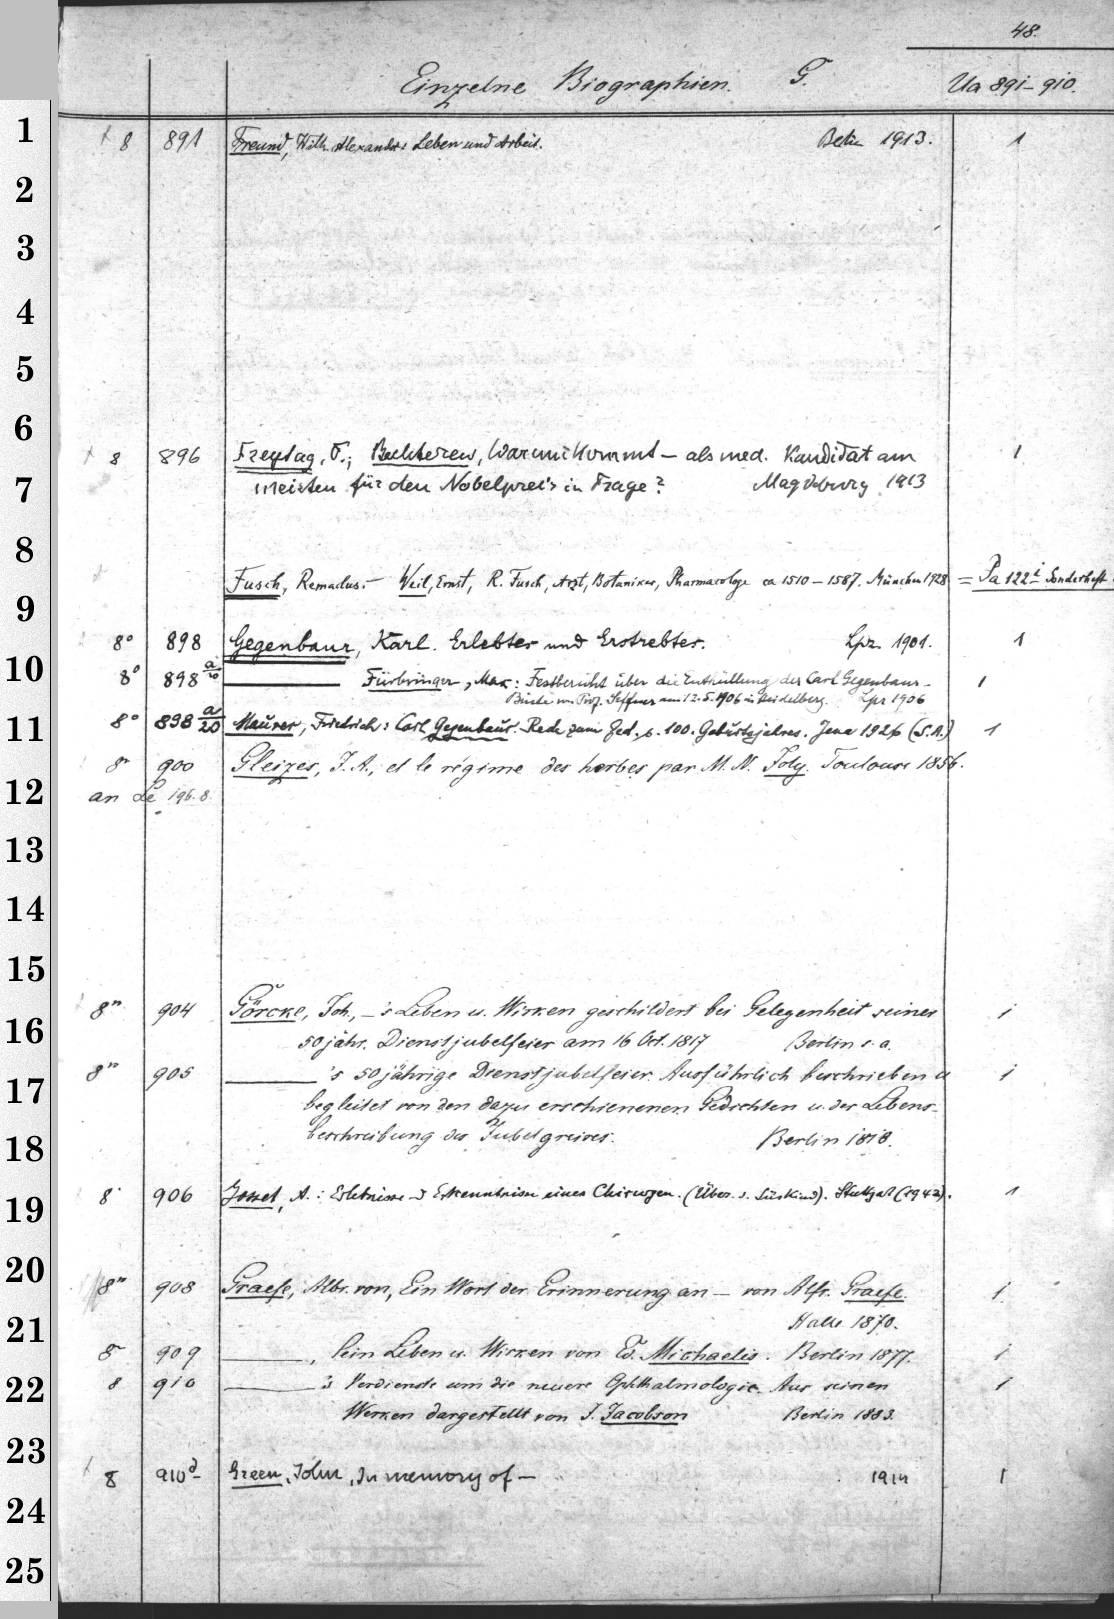 48.
Einzelne Biographien. G. Ua 891-910.
1
8 891 Freund, Wilh. Alexander: Leben und Arbeit. Berlin 1913. 1
2
3
4
5
6
8 896 Freytag, F.; Bechterew, Warum kommt — als med. Kandidat am 1
7
meisten für den Nobelpreis in Frage? Magdeburg 1913
8
Fusch, Remaclus:- Weil, Ernst, R. Fusch, Arzt, Botaniker, Pharmacologe ca 1510-1587. München 1928 = Pa 122i Sonderheft
9
8° 898 Gegenbaur, Karl. Erlebtes und Erstrebtes. Lpz. 1901. 1
10
8° 898 a/10 ——— Fürbringer, Max: Festbericht über die Enthüllung der Carl Gegenbaur- 1
Büste von Prof. Seffner am 12.5.1906 in Heidelberg. Lpz 1906
11
8° 898 a/20 Maurer, Friedrich: Carl Gegenbaur. Rede zum Ged. s. 100. Geburtsjahres. Jena 1926 (S.A.) 1
8° 900 Gleizes, J. A., et le régime des herbes par M. N. Joly. Toulouse 1856.
12
an Le 196.8.
13
14
15
8° 904 Görcke, Joh., -'s Leben u. Wirken geschildert bei Gelegenheit seines 1
16
50jähr. Dienstjubelfeier am 16 Oct. 1817 Berlin s. a.
17
8° 905 ———'s 50jährige Dienstjubelfeier. Ausführlich beschrieben u 1
begleitet von den dazu erschienenen Gedichten u. der Lebens-
18
beschreibung des Jubelgreises. Berlin 1818.
19
8° 906 Gosset, A.: Erlebnisse u Erkenntnisse eines Chirurgen. (Übers. v. Süskind). Stuttgart (1942). 1
20
8° 908 Graefe, Albr. von, Ein Wort der Erinnerung an — von Alfr. Graefe. 1.
21
Halle 1870.
8° 909 ———, Sein Leben u. Wirken von Ed. Michaelis. Berlin 1877. 1
22
8 910 ———'s Verdienste um die neuere Ophthalmologie. Aus seinen 1
Werken dargestellt von J. Jacobson Berlin 1883.
23
8 910d Green, John, In memory of — 1914 1
24
25